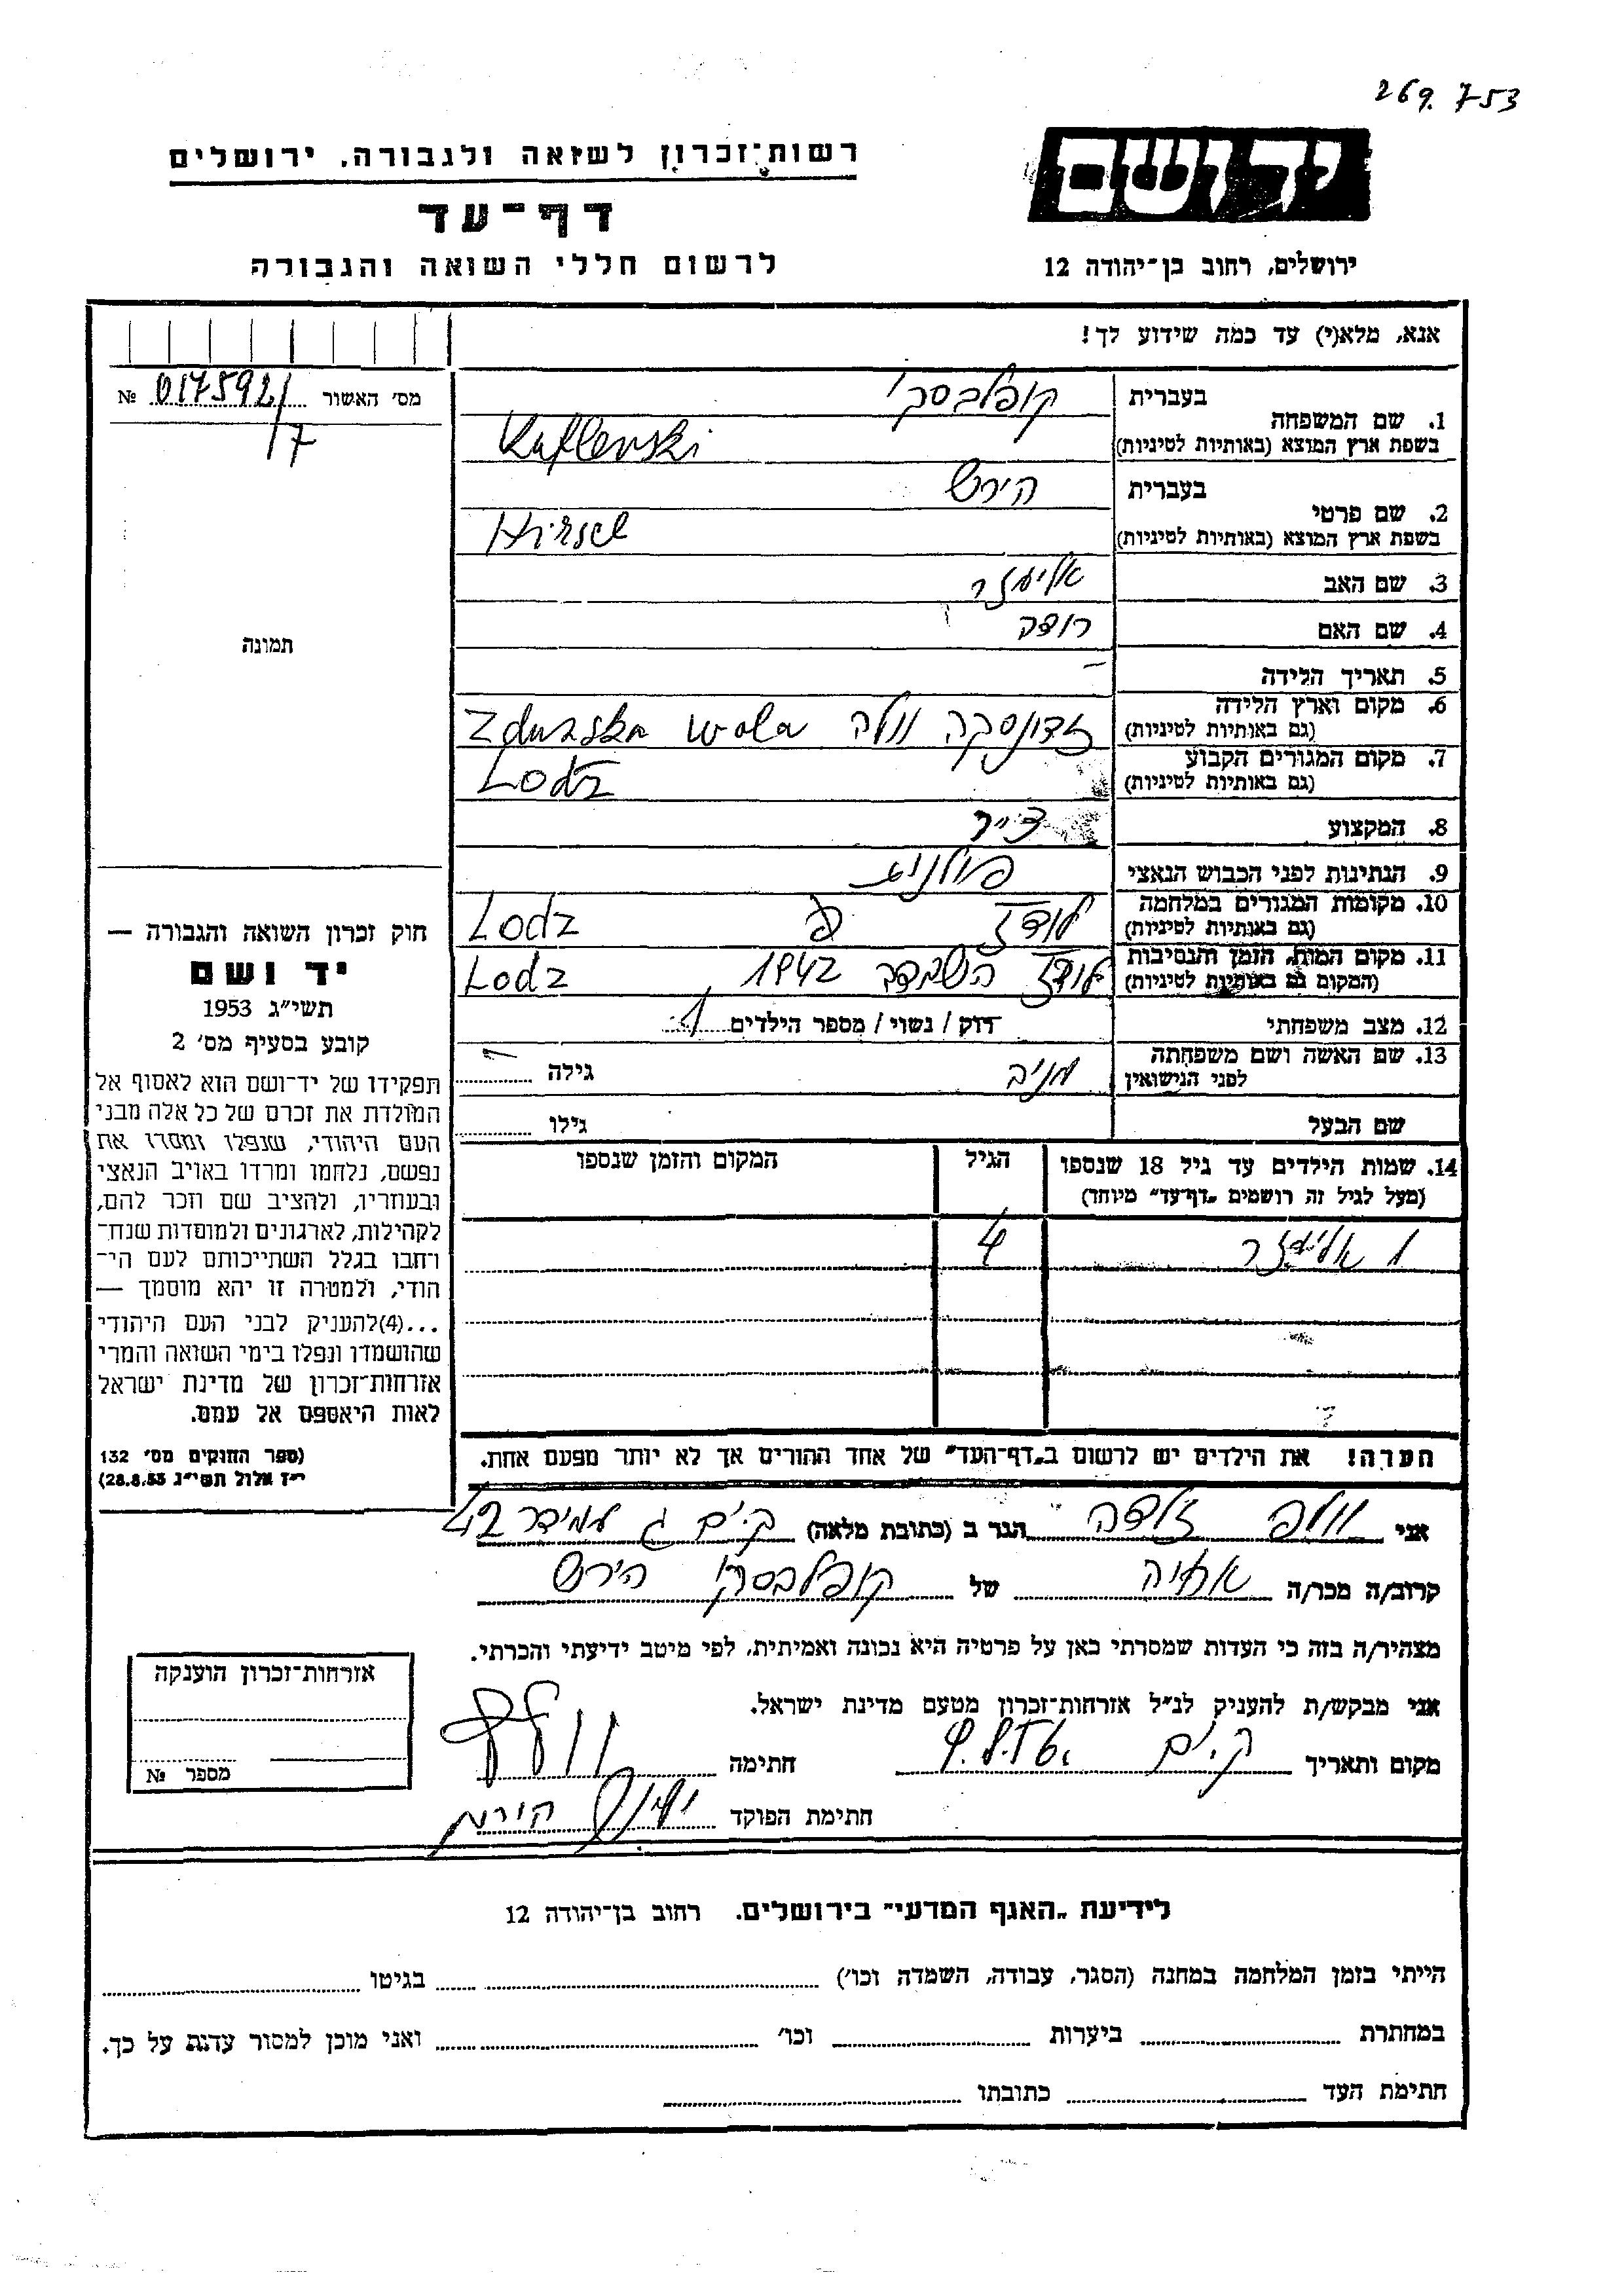 269.753
ידושם
רשות־זכרון לשואה ולגבורה, ירושלים
דף־עד
לרשום חללי השואה והגבורה
ירושלים, רחוב בן־יהודה 12
אנא, מלא(י) עד כמה שידוע לך!
מס׳ האשור 017592/ №
17
תמונה
1. שם המשפחה בעברית קופלבסקי
בשפת ארץ המוצא (באותיות לטיניות) Kuflewski
2. שם פרטי בעברית הירש
בשפת ארץ המוצא (באותיות לטיניות) Hirsch
3. שם האב אליעזר
4. שם האם
5. תאריך הלידה –
6. מקום וארץ הלידה (גם באותיות לטיניות) זדונסקה וולה Zdunska wola
7. מקום המגורים הקבוע (גם באותיות לטיניות) Lodz
8. המקצוע
9. הנתינות לפני הכבוש הנאצי פולנית
10. מקומות המגורים במלחמה (גם באותיות לטיניות) לודז Lodz
11. מקום המות, הזמן והנסיבות (המקום גם באותיות לטיניות) לודז 1942 Lodz
12. מצב משפחתי רוק / נשוי / מספר הילדים 1
13. שם האשה ושם משפחתה לפני הנישואין גילה –
שם הבעל גילו
14. שמות הילדים עד גיל 18 שנספו הגיל המקום והזמן שנספו
(מעל לגיל זה רושמים „דף־עד״ מיוחד)
1 אליעזר 4
הערה! את הילדים יש לרשום ב„דף־העד״ של אחד ההורים אך לא יותר מפעם אחת.
חוק זכרון השואה והגבורה —
יד ושם
תשי״ג 1953
קובע בסעיף מס׳ 2
תפקידו של יד־ושם הוא לאסוף אל
המולדת את זכרם של כל אלה מבני
העם היהודי, שנפלו ומסרו את
נפשם, נלחמו ומרדו באויב הנאצי
ובעוזריו, ולהציב שם וזכר להם,
לקהילות, לארגונים ולמוסדות שנח־
רחבו בגלל השתייכותם לעם הי־
הודי, ולמטרה זו יהא מוסמך —
...(4)להעניק לבני העם היהודי
שהושמדו ונפלו בימי השואה והמרי
אזרחות־זכרון של מדינת ישראל
לאות היאספם אל עמם.
(ספר החוקים מס׳ 132
י״ז אלול תשי״ג 28.8.53)
אני וולף זלדה הגר ב (כתובת מלאה) ק.ים ג עמידר 42
קרוב/ה מכר/ה אחיה של קופלבסקי הירש
מצהיר/ה בזה כי העדות שמסרתי כאן על פרטיה היא נכונה ואמיתית, לפי מיטב ידיעתי והכרתי.
אני מבקש/ת להעניק לנ״ל אזרחות־זכרון מטעם מדינת ישראל.
מקום ותאריך ק.ים חתימה
חתימת הפוקד
אזרחות־זכרון הוענקה
מספר №
לידיעת „האגף המדעי״ בירושלים. רחוב בן־יהודה 12
הייתי בזמן המלחמה במחנה (הסגר, עבודה, השמדה וכו׳) בגיטו
במחתרת ביערות וכו׳ ואני מוכן למסור עדות על כך.
חתימת העד כתובתו